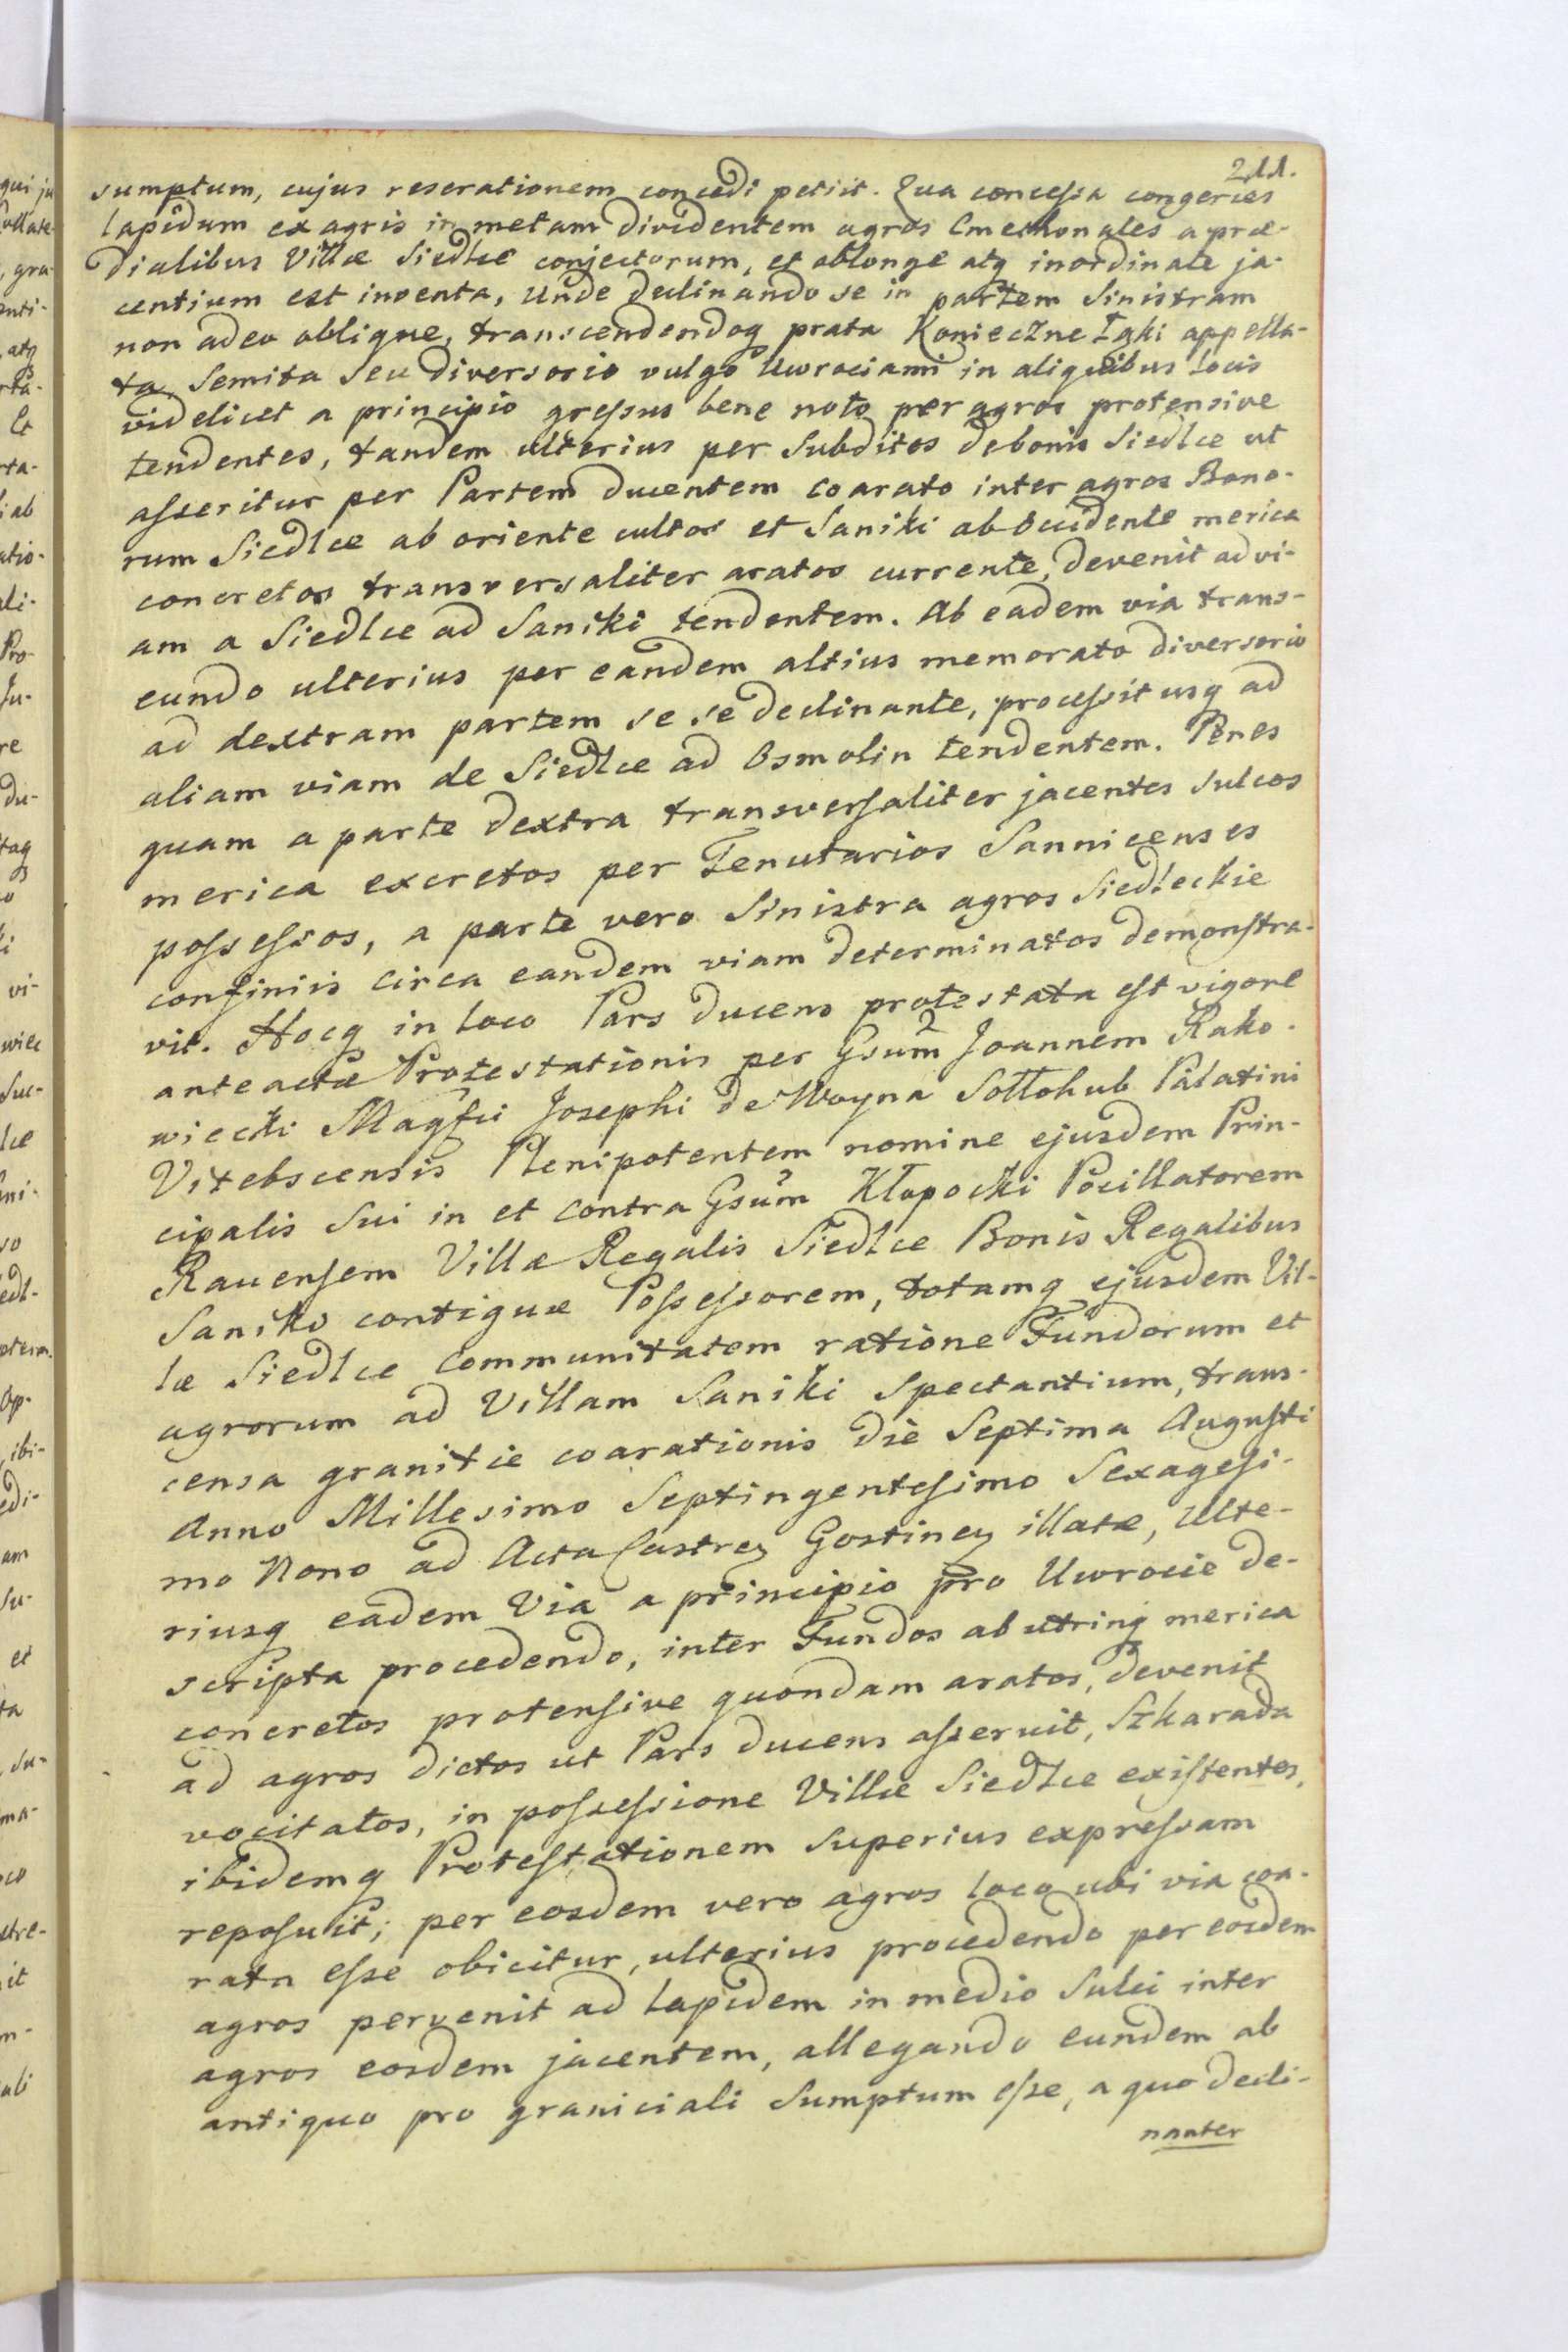 211.
sumptum, cujus reserationem concedi petiit. Qua concessa congeries
lapidum ex agris in metam dividentem agros Cmethonales a præ-
dialibus Villæ Siedlce conjectorum, et oblonge atq inordinate ja-
centium est inventa, Unde declinando se in partem Sinistram
non adeo oblique, transcendendoq prata Konieczne Łąki appella-
ta Semita Seu diversorio vulgo Uwrociami in aliquibus Locis
videlicet a principio gressus bene noto per agros protensive
tendentes, tandem ulterius per Subditos de bonis Siedlce ut
asseritur per Partem ducentem coarato inter agros Bono-
rum Siedlce ab oriente cultos et Saniki ab Occidente merica
concretos transversaliter aratos currente, devenit ad vi-
am a Siedlce ad Saniki tendentem. Ab eadem via trans-
eundo ulterius per eandem altius memorato diversorio
ad dextram partem se se declinante, processit usq ad
aliam viam de Siedlce ad Osmolin tendentem. Penes
quam a parte dextra transversaliter jacentes Sulcos
merica excretos per Tenutarios Sannicenses
possessos, a parte vero Sinistra agros Siedleckie
confiniis circa eandem viam determinatos demonstra-
vit. Hocq in loco Pars ducens protestata est vigore
anteactæ Protestationis per Gsum Joannem Rako-
wiecki Magfci Josephi de Woyna Sołłohub Palatini
Vitebscensis Plenipotentem nomine ejusdem Prin-
cipalis Sui in et contra Gsum Kłopocki Pocillatorem
Ravensem Villæ Regalis Siedlce Bonis Regalibus
Saniko contiguæ Possessorem, totamq ejusdem Vil-
læ Siedlce Communitatem ratione Fundorum et
agrorum ad Villam Saniki Spectantium, trans-
censa granitie coarationis die Septima Augusti
Anno Millesimo Septingentesimo Sexagesi-
mo Nono ad Acta Castren Gostinen illatæ, Ulte-
riusq eadem Via a principio pro Uwrocie de-
scripta procedendo, inter Fundos ab utrinq merica
concretos protensive quondam aratos, devenit
ad agros dictos ut Pars ducens asseruit, Szkarada
vocitatos, in possessione Villæ Siedlce existentes,
ibidemq Protestationem Superius expressam
reposuit; per eosdem vero agros loco ubi via coa-
rata esse obicitur, ulterius procedendo per eosdem
agros pervenit ad Lapidem in medio Sulci inter
agros eosdem jacentem, allegando eundem ab
antiquo pro graniciali Sumptum esse, a quo decli-
nanter